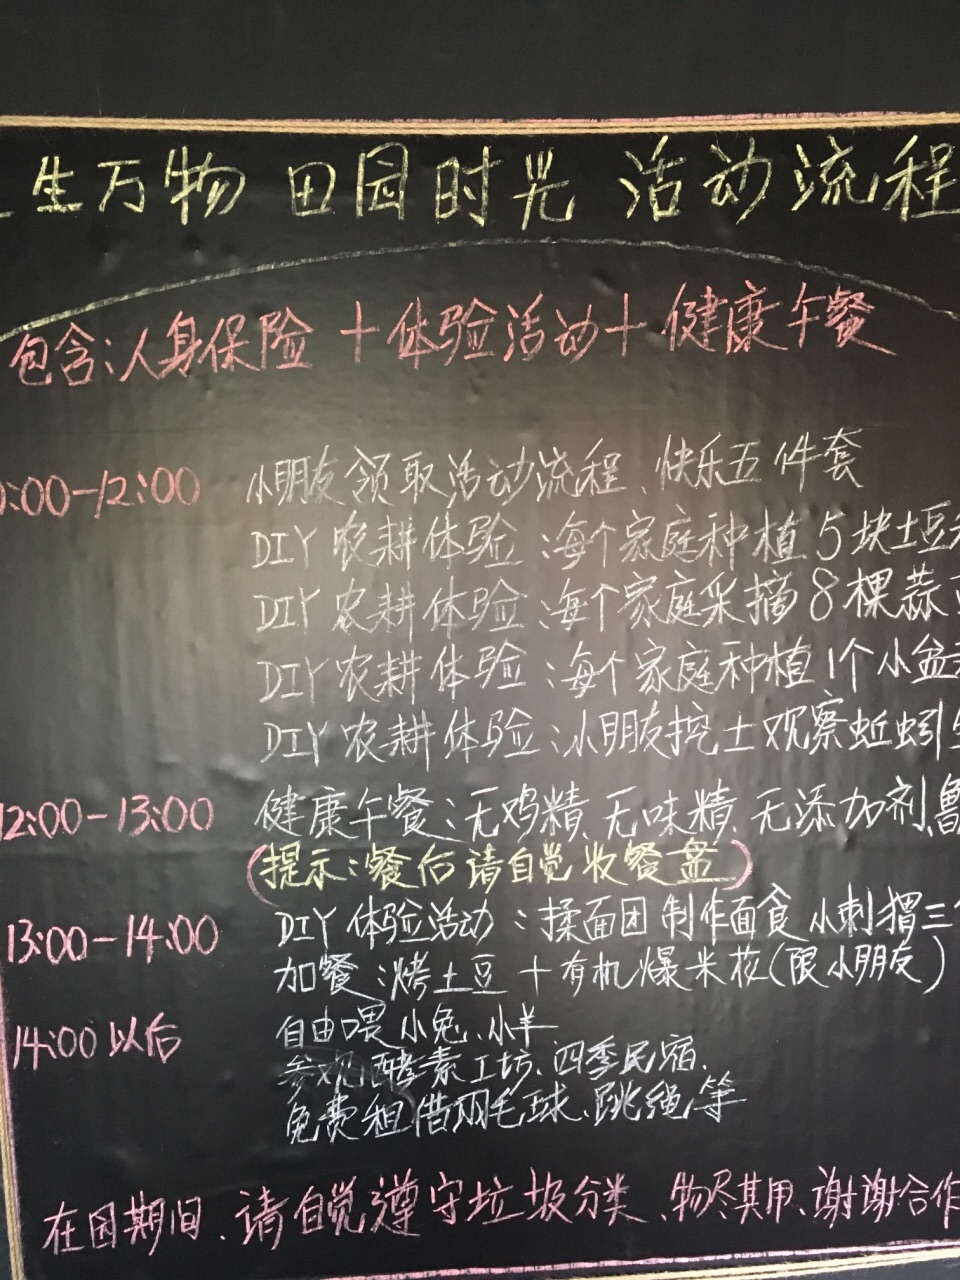 生万物 田园时光 活动流程
包含:人身保险+体验活动+健康午餐
:00-12:00 小朋友领取活动流程、快乐五件套
DIY农耕体验:每个家庭种植5块土豆
DIY农耕体验:每个家庭采摘8棵蒜
DIY农耕体验:每个家庭种植1个小盆
DIY农耕体验:小朋友挖土观察蚯蚓
12:00-13:00 健康午餐:无鸡精、无味精、无添加剂、
(提示:餐后请自觉收餐盘)
13:00-14:00 DIY体验活动:揉面团制作面食小刺猬三
加餐:烤土豆+有机爆米花(限小朋友)
14:00以后 自由喂小兔、小羊
参观酵素工坊、四季民宿、
免费租借羽毛球、跳绳等
在园期间、请自觉遵守垃圾分类、物尽其用、谢谢合作